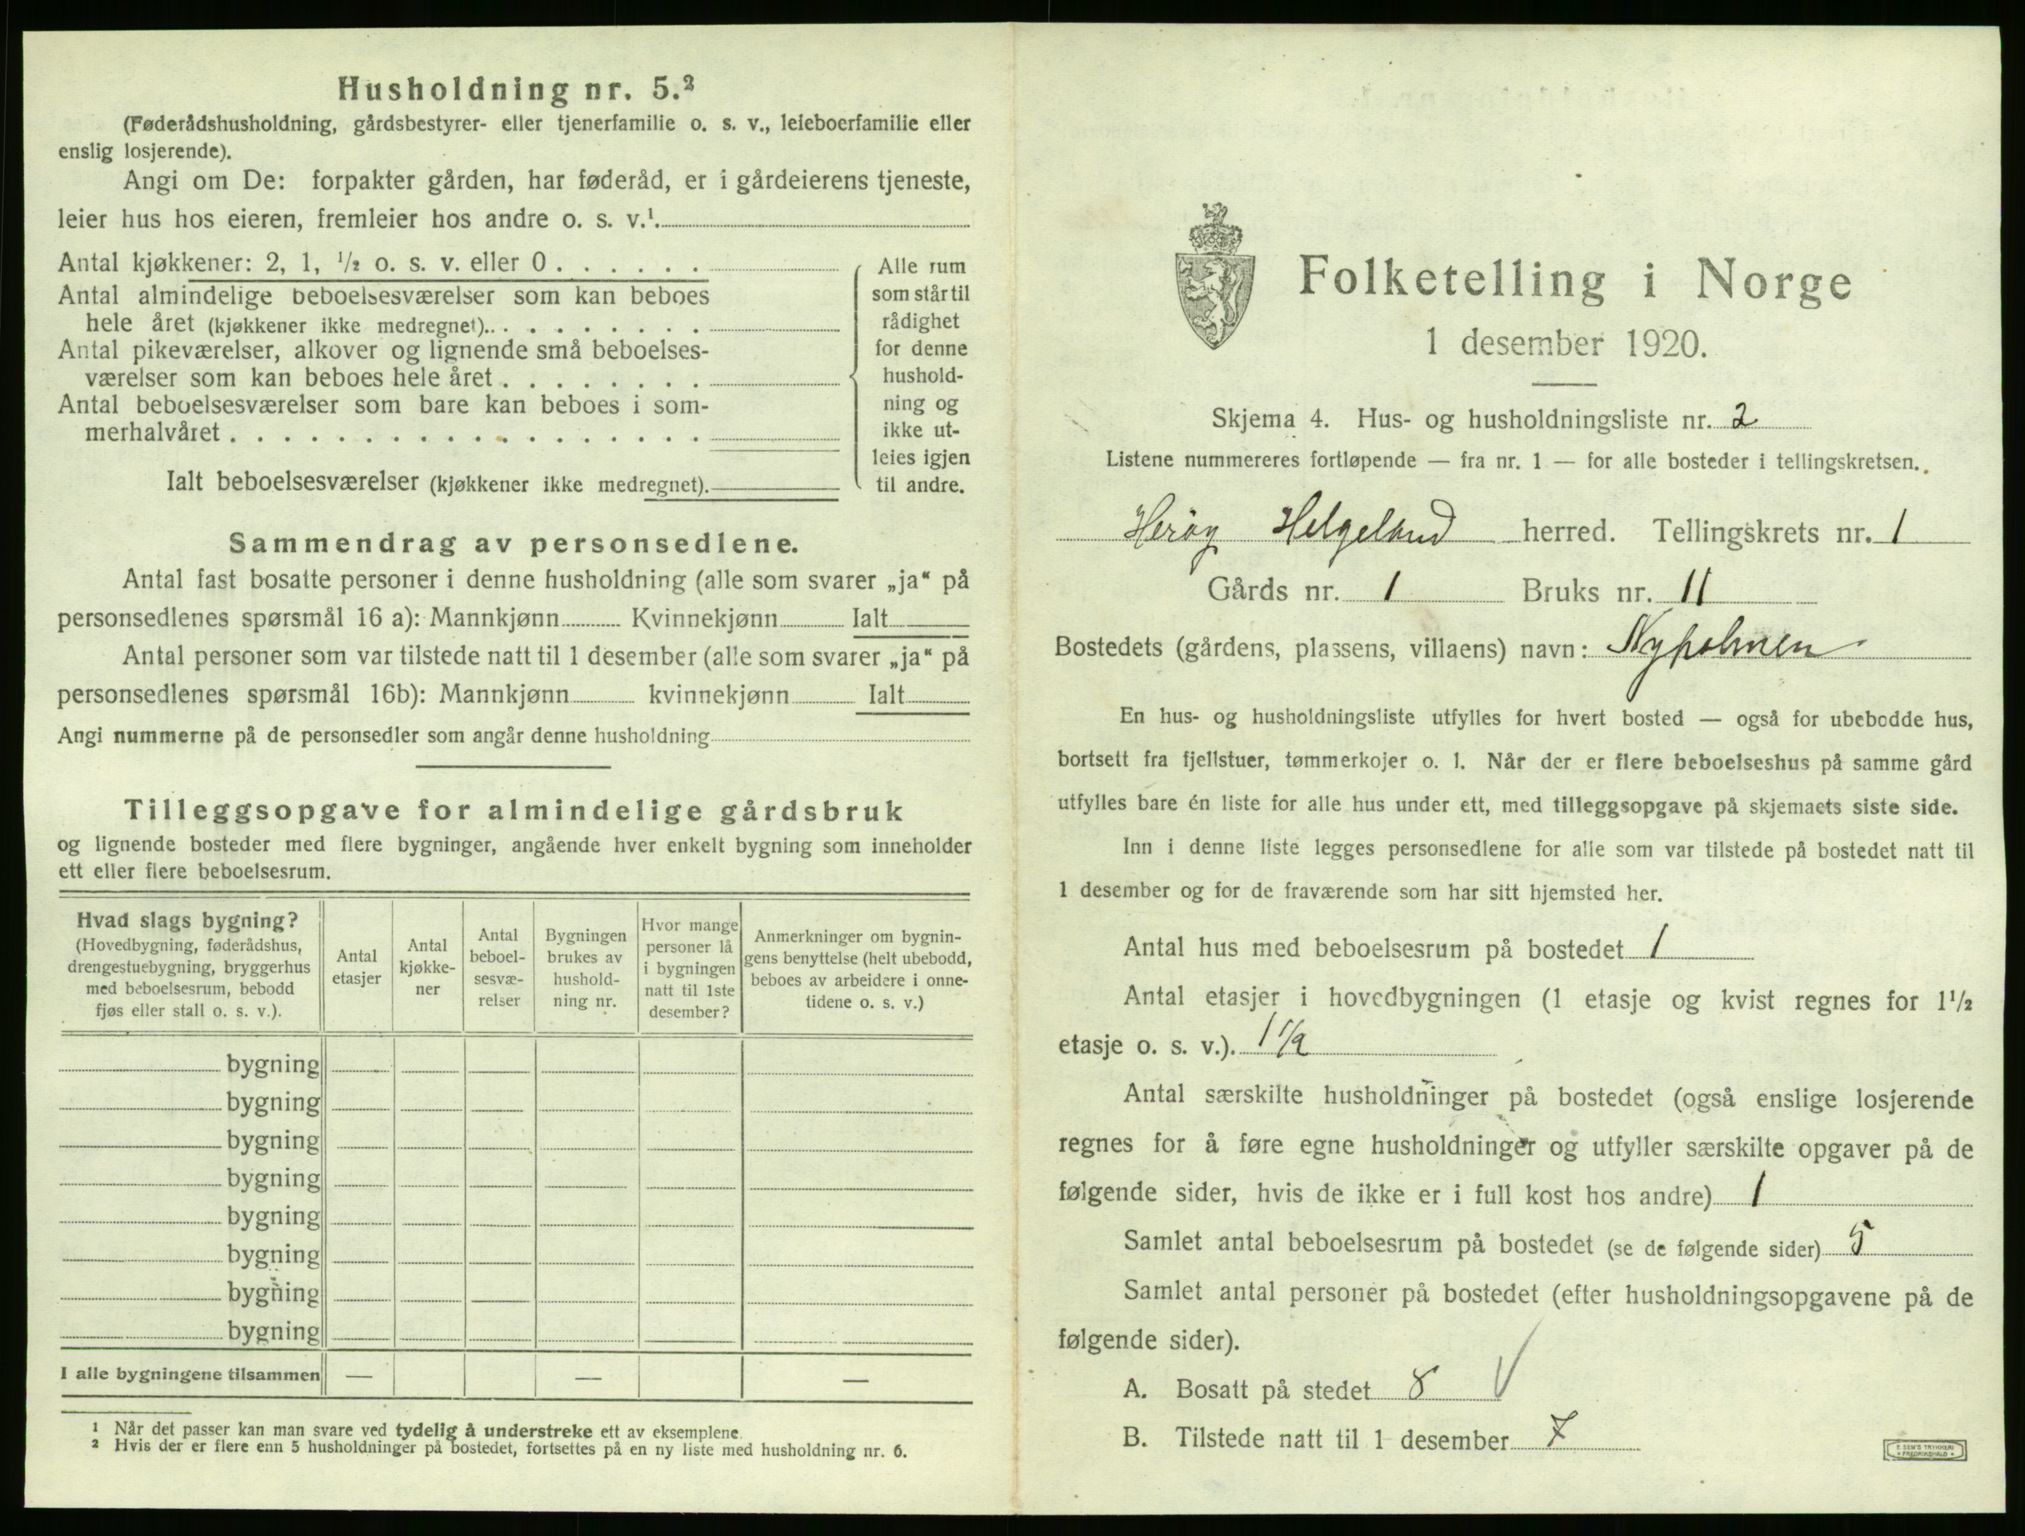 Husholdning nr. 5.²
(Føderådshusholdning, gårdsbestyrer- eller tjenerfamilie o. s. v., leieboerfamilie eller
enslig losjerende).
Angi om De: forpakter gården, har føderåd, er i gårdeierens tjeneste,
leier hus hos eieren, fremleier hos andre o. s. v.¹.
Antal kjøkkener: 2, 1, ½ o. s. v. eller 0 . . . . . .
Antal almindelige beboelsesværelser som kan beboes
hele året (kjøkkener ikke medregnet). . . . . . . . .
Antal pikeværelser, alkover og lignende små beboelses-
værelser som kan beboes hele året . . . . . . . .
Antal beboelsesværelser som bare kan beboes i som-
merhalvåret . . . . . . . . . . . . . . . . . .
Ialt beboelsesværelser (kjøkkener ikke medregnet).
Alle rum
som står til
rådighet
for denne
hushold-
ning og
ikke ut-
leies igjen
til andre.
Sammendrag av personsedlene.
Antal fast bosatte personer i denne husholdning (alle som svarer „ja“ på
personsedlenes spørsmål 16 a): Mannkjønn Kvinnekjønn Ialt
Antal personer som var tilstede natt til 1 desember (alle som svarer „ja“ på
personsedlenes spørsmål 16b): Mannkjønn kvinnekjønn Ialt
Angi nummerne på de personsedler som angår denne husholdning
Tilleggsopgave for almindelige gårdsbruk
og lignende bosteder med flere bygninger, angående hver enkelt bygning som inneholder
ett eller flere beboelsesrum.
Hvad slags bygning?
(Hovedbygning, føderådshus,
drengestuebygning, bryggerhus
med beboelsesrum, bebodd
fjøs eller stall o. s. v.).
Antal
etasjer
Antal
kjøkke-
ner
Antal
beboel-
sesvæ-
relser
Bygningen
brukes av
hushold-
ning nr.
Hvor mange
personer lå
i bygningen
natt til 1ste
desember?
Anmerkninger om bygnin-
gens benyttelse (helt ubebodd,
beboes av arbeidere i onne-
tidene o. s. v.)
bygning
bygning
bygning
bygning
bygning
bygning
bygning
bygning
I alle bygningene tilsammen — — —
¹ Når det passer kan man svare ved tydelig å understreke ett av eksemplene.
² Hvis der er flere enn 5 husholdninger på bostedet, fortsettes på en ny liste med husholdning nr. 6.
Folketelling i Norge
1 desember 1920.
Skjema 4. Hus- og husholdningsliste nr. 2
Listene nummereres fortløpende — fra nr. 1 — for alle bosteder i tellingskretsen.
Herøy Helgeland herred. Tellingskrets nr. 1
Gårds nr. 1 Bruks nr. 11
Bostedets (gårdens, plassens, villaens) navn: Nypolmen
En hus- og husholdningsliste utfylles for hvert bosted — også for ubebodde hus,
bortsett fra fjellstuer, tømmerkojer o. l. Når der er flere beboelseshus på samme gård
utfylles bare én liste for alle hus under ett, med tilleggsopgave på skjemaets siste side.
Inn i denne liste legges personsedlene for alle som var tilstede på bostedet natt til
1 desember og for de fraværende som har sitt hjemsted her.
Antal hus med beboelsesrum på bostedet 1
Antal etasjer i hovedbygningen (1 etasje og kvist regnes for 1½
etasje o. s. v.). 1 1/2
Antal særskilte husholdninger på bostedet (også enslige losjerende
regnes for å føre egne husholdninger og utfyller særskilte opgaver på de
følgende sider, hvis de ikke er i full kost hos andre) 1
Samlet antal beboelsesrum på bostedet (se de følgende sider) 5
Samlet antal personer på bostedet (efter husholdningsopgavene på de
følgende sider).
A. Bosatt på stedet 8 V
B. Tilstede natt til 1 desember 7